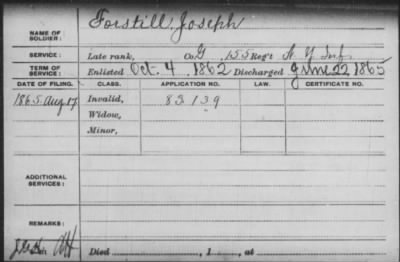 NAME OF SOLDIER: Forstill, Joseph
SERVICE: Late rank, Co. G, 155 Reg't N. Y. Inf.
TERM OF SERVICE: Enlisted Oct. 4, 1862 Discharged June 22 1865
DATE OF FILING. CLASS. APPLICATION NO. LAW. CERTIFICATE NO.
1865. Aug 17 Invalid, 83139
Widow,
Minor,
ADDITIONAL SERVICES:
REMARKS:
Died , 1 , at